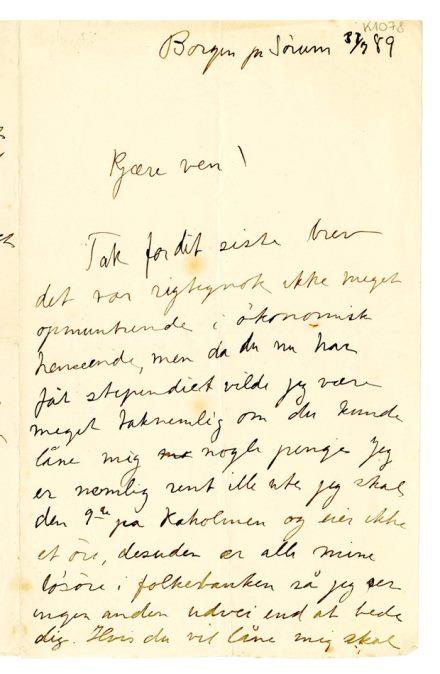 K1078
Borgen pr Sörum 31/7 89
Kjære ven!
Tak for dit siste brev
det var rigtignok ikke meget
opmuntrende i ökonomisk
henseende, men da du nu har
fåt stipendiet vilde jeg være
meget taknemlig om du kunde
låne mig nogle penge Jeg
er nemlig rent ille ute, jeg skal
den 9de på Kaholmen og eier ikke
et öre, desuden er alle mine
lösöre i folkebanken så jeg ser
ingen anden udvei end at bede
dig. Hvis du vil låne mig skal